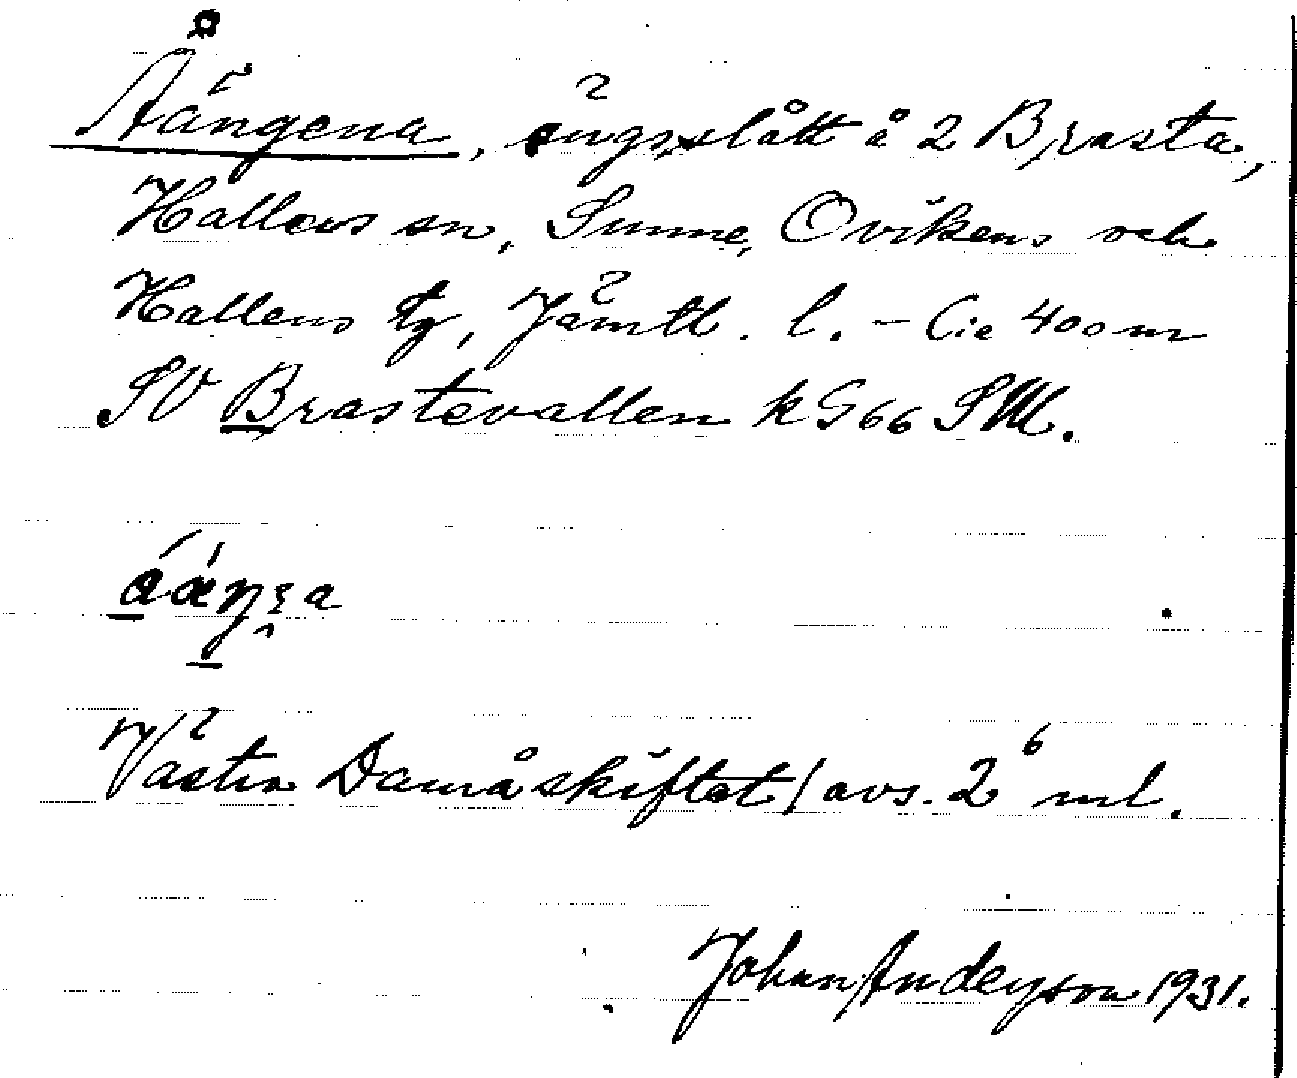 Åängena, ängsslått å 2 Brasta,
Hallens sn, Sunne, Ovikens och
Hallens tg, Jämtl. l. – C:ie 400 m
SV Brastevallen k G66 SW.
ååŋɛa
Västra Damåskiftet / avs. 2⁶ ml.
Johan Anderson 1931.